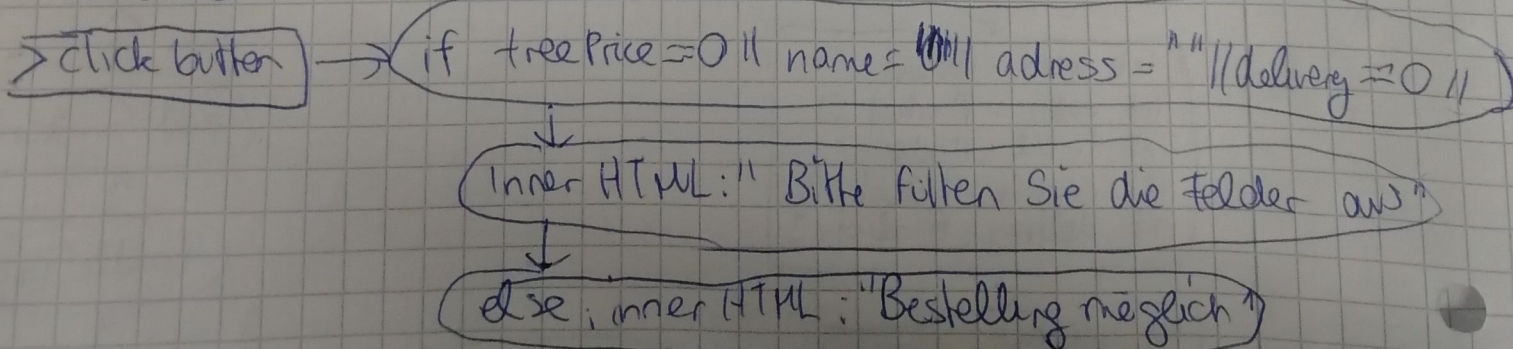 click button if treePrice=0 || name= || adress = "" || delivery = 0 ||
inner HTML: " Bitte füllen Sie die Felder aus"
else; inner HTML: "Bestellung möglich"